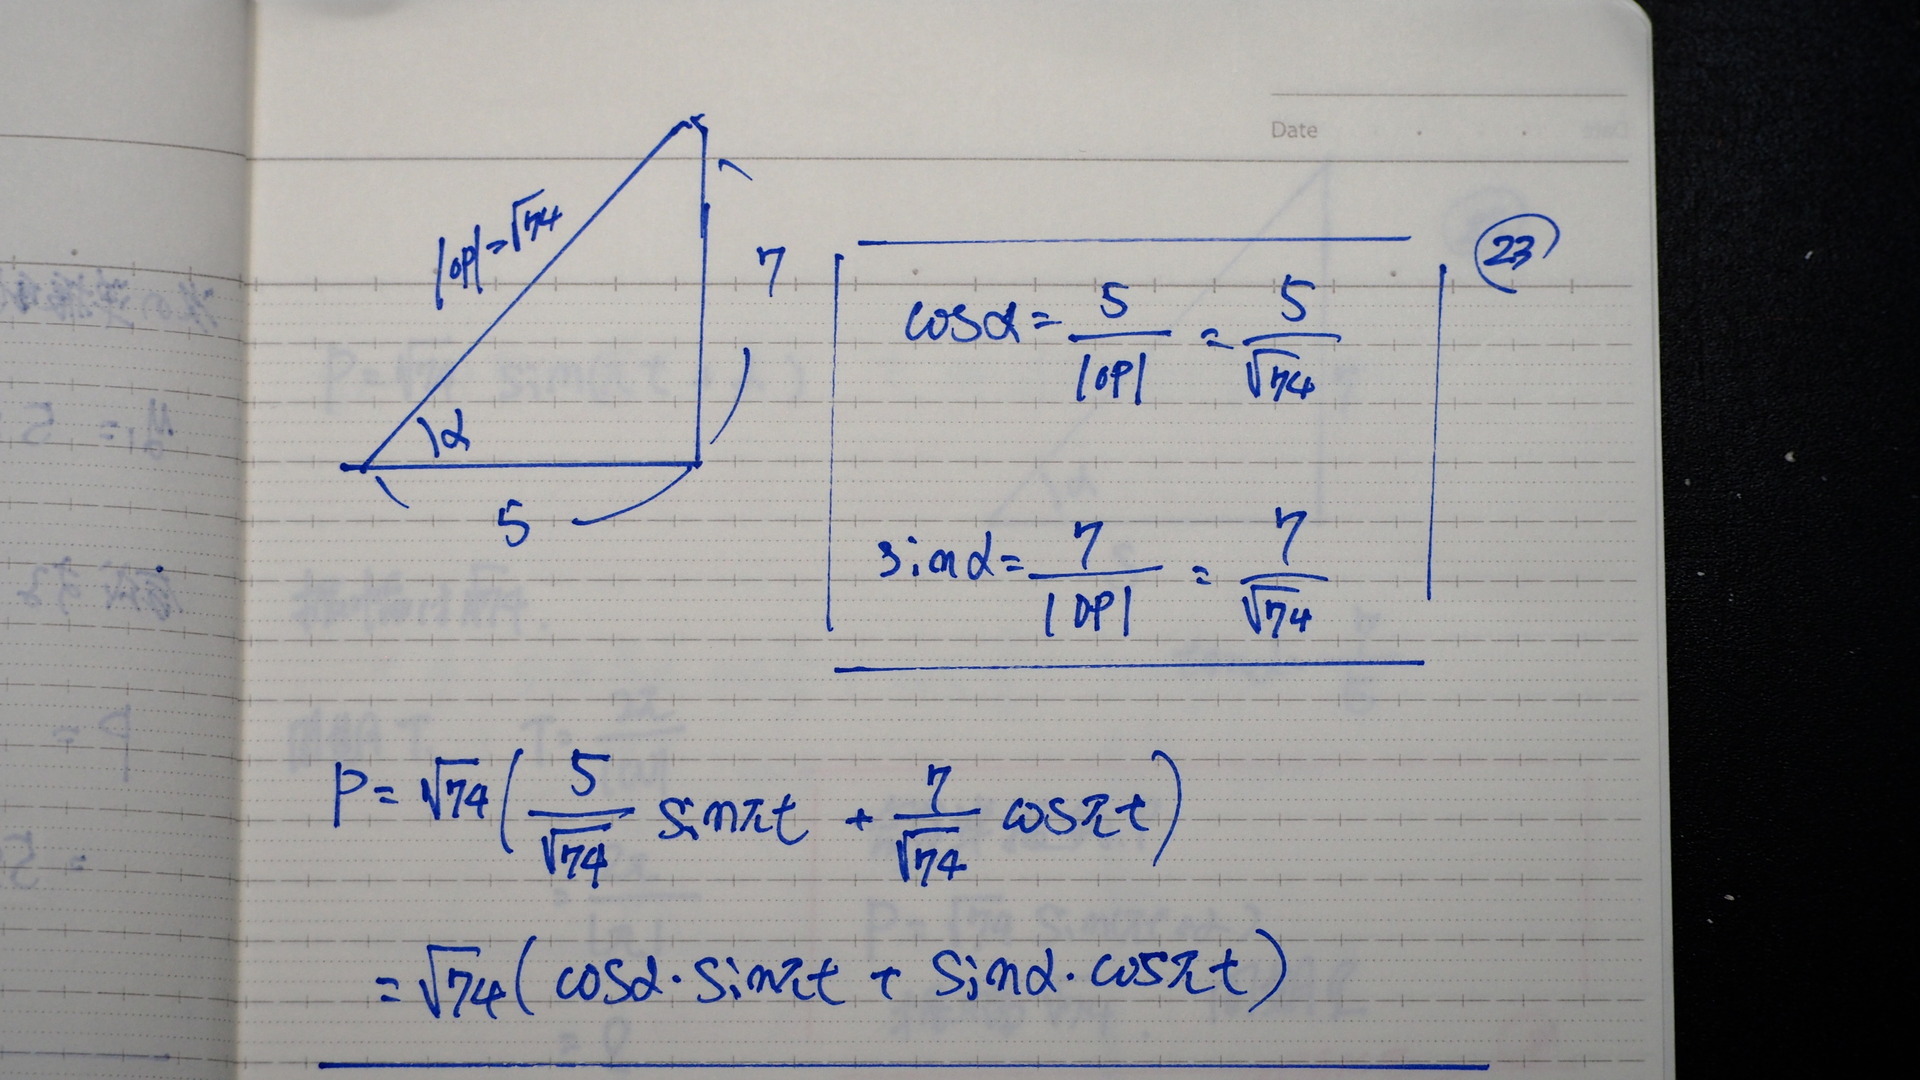 Date
23
|OP|=√74
7
α
5
cosα = 5/|OP| = 5/√74
sinα = 7/|OP| = 7/√74
P = √74 ( 5/√74 sinπt + 7/√74 cosπt )
= √74 ( cosα・sinπt + sinα・cosπt )